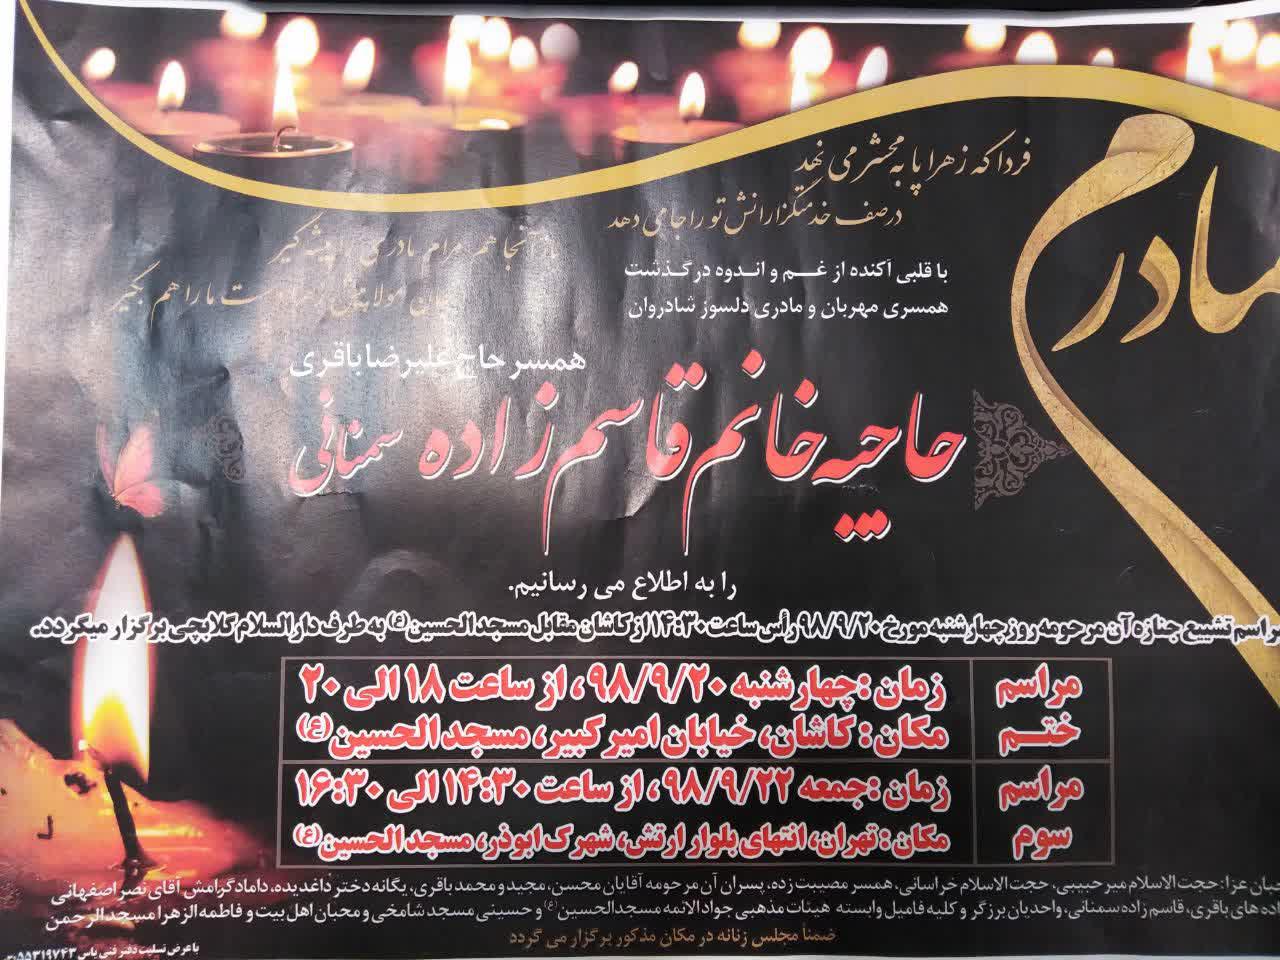 مادرم
فردا که زهرا پا به محشر می نهد
در صف خدمتگزارانش تو را جا می دهد
آنجا هم مرام مادری را پیشه گیر
جان مولا دست ما را هم بگیر
با قلبی آکنده از غم و اندوه درگذشت
همسری مهربان و مادری دلسوز شادروان
همسر حاج علیرضا باقری
حاجیه خانم قاسم زاده سمنانی
را به اطلاع می رسانیم.
مراسم تشییع جنازه آن مرحومه روز چهارشنبه مورخ ۹۸/۹/۲۰ رأس ساعت ۱۴:۳۰ از کاشان مقابل مسجد الحسین (ع) به طرف دار السلام کلابچی برگزار میگردد.
مراسم ختم
زمان : چهارشنبه ۹۸/۹/۲۰ ، از ساعت ۱۸ الی ۲۰
مکان : کاشان، خیابان امیر کبیر، مسجد الحسین (ع)
مراسم سوم
زمان : جمعه ۹۸/۹/۲۲ ، از ساعت ۱۴:۳۰ الی ۱۶:۳۰
مکان : تهران، انتهای بلوار ارتش، شهرک ابوذر، مسجد الحسین (ع)
عزا : حجت الاسلام میر حبیبی، حجت الاسلام خراسانی، همسر مصیبت زده، پسران آن مرحومه آقایان محسن، مجید و محمد باقری، یگانه دختر داغدیده، داماد گرامش آقای نصر اصفهانی
های باقری، قاسم زاده سمنانی، واحدیان برزگر و کلیه فامیل وابسته هیئات مذهبی جواد الائمه مسجد الحسین (ع) و حسینی مسجد شامخی و محبان اهل بیت و فاطمه الزهرا مسجد الرحمن
ضمناً مجلس زنانه در مکان مذکور برگزار می گردد
با عرض تسلیت دفتر فنی یاس ۵۵۳۱۹۷۴۳